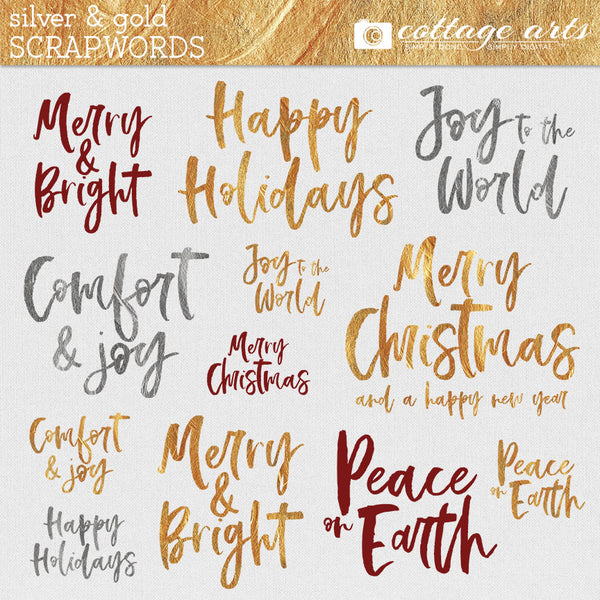 silver & gold
SCRAPWORDS
cottage arts
SIMPLY DONE. SIMPLY DIGITAL.
Merry
&
Bright
Happy
Holidays
Joy to the
World
Comfort
& joy
Joy to the
World
Merry
Christmas
Merry
Christmas
and a happy new year
Comfort
& joy
Happy
Holidays
Merry
&
Bright
Peace
on Earth
Peace
on Earth